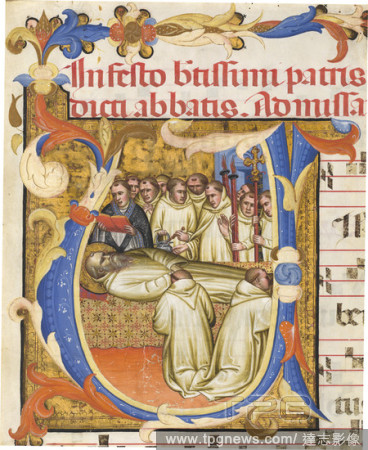 In festo b̄tissimi patris
dicti abbatis. Ad missa
www.tpgnews.com/ 達志影像